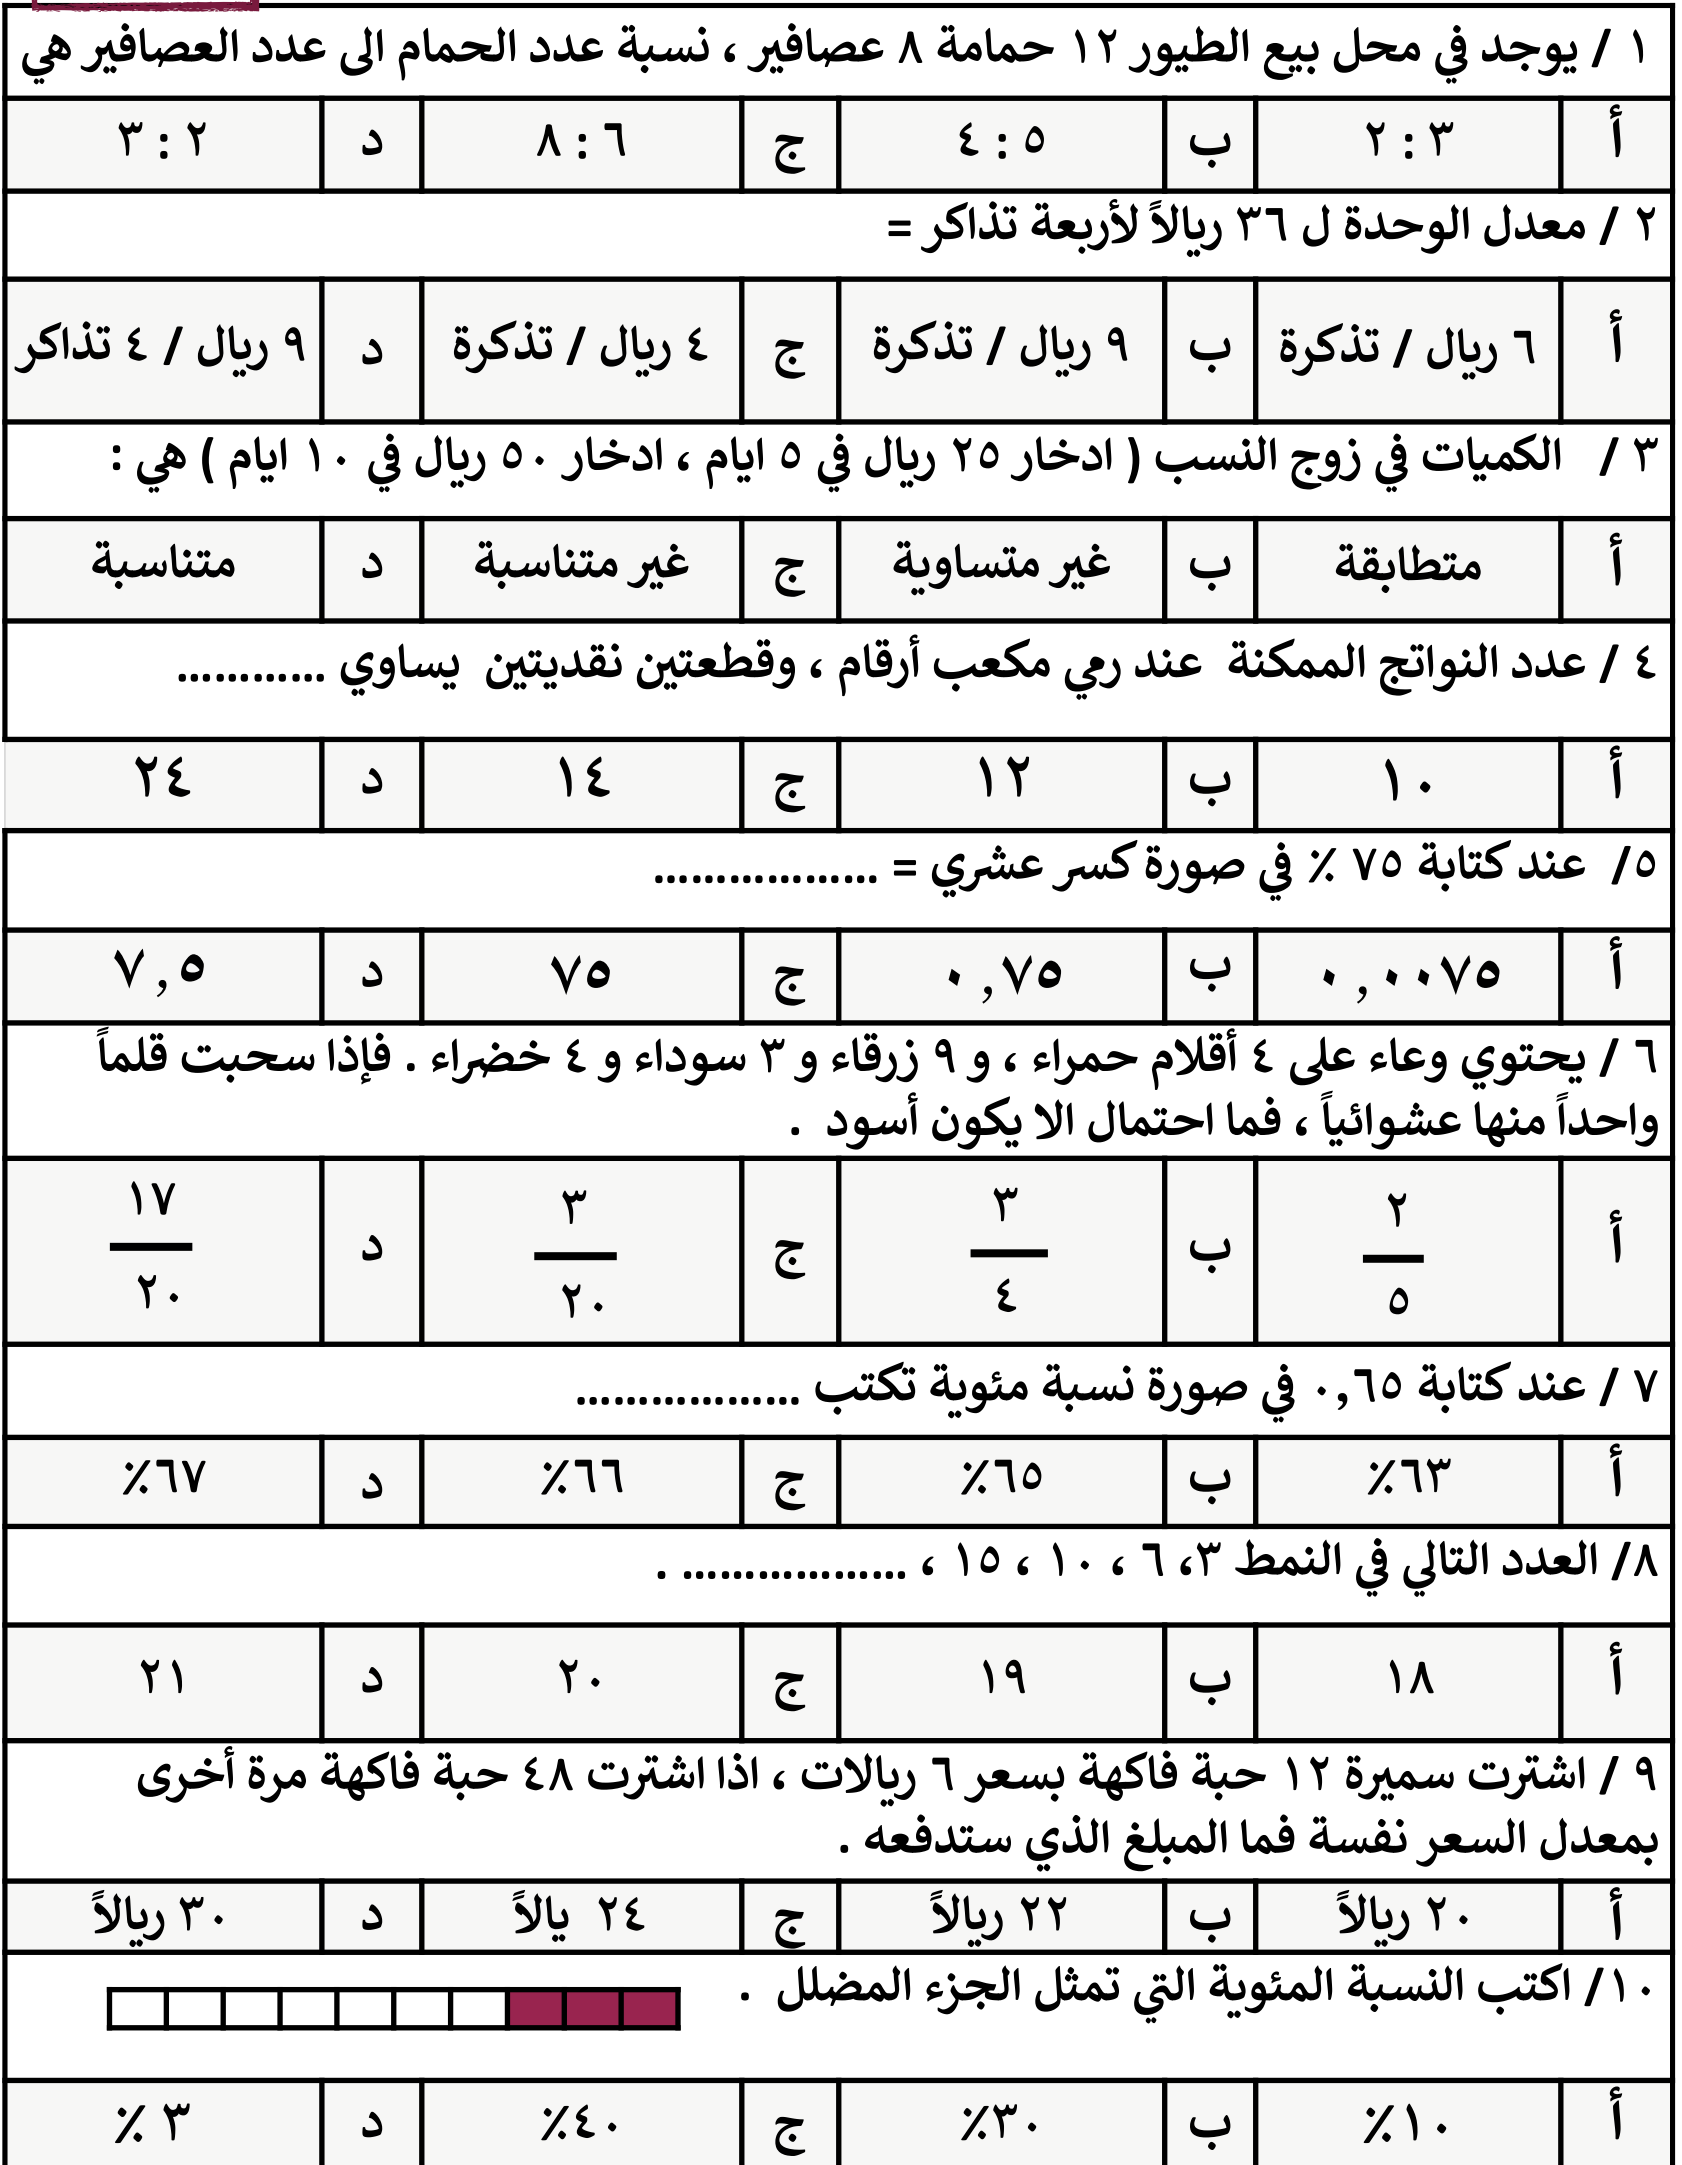 ١ / يوجد في محل بيع الطيور ١٢ حمامة ٨ عصافير ، نسبة عدد الحمام الى عدد العصافير هي
أ ٣ : ٢ ب ٥ : ٤ ج ٦ : ٨ د ٢ : ٣
٢ / معدل الوحدة ل ٣٦ ريالاً لأربعة تذاكر =
أ ٦ ريال / تذكرة ب ٩ ريال / تذكرة ج ٤ ريال / تذكرة د ٩ ريال / ٤ تذاكر
٣ / الكميات في زوج النسب ( ادخار ٢٥ ريال في ٥ ايام ، ادخار ٥٠ ريال في ١٠ ايام ) هي :
أ متطابقة ب غير متساوية ج غير متناسبة د متناسبة
٤ / عدد النواتج الممكنة عند رمي مكعب أرقام ، وقطعتين نقديتين يساوي ............
أ ١٠ ب ١٢ ج ١٤ د ٢٤
٥/ عند كتابة ٧٥ ٪ في صورة كسر عشري = ..................
أ ٠,٠٠٧٥ ب ٠,٧٥ ج ٧٥ د ٧,٥
٦ / يحتوي وعاء على ٤ أقلام حمراء ، و ٩ زرقاء و ٣ سوداء و ٤ خضراء . فإذا سحبت قلماً
واحداً منها عشوائياً ، فما احتمال الا يكون أسود .
أ ٢/٥ ب ٣/٤ ج ٣/٢٠ د ١٧/٢٠
٧ / عند كتابة ٠,٦٥ في صورة نسبة مئوية تكتب ..................
أ ٦٣٪ ب ٦٥٪ ج ٦٦٪ د ٦٧٪
٨/ العدد التالي في النمط ٣، ٦ ، ١٠ ، ١٥ ، .................. .
أ ١٨ ب ١٩ ج ٢٠ د ٢١
٩ / اشترت سميرة ١٢ حبة فاكهة بسعر ٦ ريالات ، اذا اشترت ٤٨ حبة فاكهة مرة أخرى
بمعدل السعر نفسة فما المبلغ الذي ستدفعه .
أ ٢٠ ريالاً ب ٢٢ ريالاً ج ٢٤ يالاً د ٣٠ ريالاً
١٠/ اكتب النسبة المئوية التي تمثل الجزء المضلل .
أ ١٠٪ ب ٣٠٪ ج ٤٠٪ د ٣ ٪